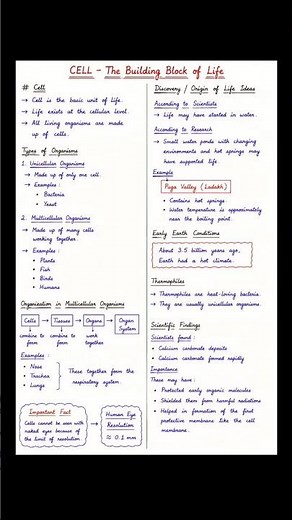 CELL - The Building Block of Life
# Cell
→ Cell is the basic unit of Life.
→ Life exists at the cellular level.
→ All living organisms are made
up of cells.
Types of Organisms
1. Unicellular Organisms
→ Made up of only one cell.
→ Examples :
• Bacteria
• Yeast
2. Multicellular Organisms
→ Made up of many cells
working together.
→ Examples :
• Plants
• Fish
• Birds
• Humans
Organisation in Multicellular Organisms
Cells → Tissues → Organs → Organ
System
combine to
form
combine to
form
work
together
Examples :
• Nose
• Trachea
• Lungs
These together form the
respiratory system.
Important Fact
Cells cannot be seen with
naked eyes because of
the limit of resolution
Human Eye
Resolution
≈ 0.1 mm
Discovery / Origin of Life Ideas
According to Scientists
→ Life may have started in water.
According to Research
→ Small water ponds with changing
environments and hot springs may
have supported life.
Example
Puga Valley (Ladakh)
• Contains hot springs.
• Water temperature is approximately
near the boiling point.
Early Earth Conditions
About 3.5 billion years ago,
Earth had a hot climate.
Thermophiles
→ Thermophiles are heat-loving bacteria.
→ They are usually unicellular organisms.
Scientific Findings
Scientists found :
• Calcium carbonate deposits
• Calcium carbonate formed rapidly
Importance
These may have :
• Protected early organic molecules
• Shielded them from harmful radiations
• Helped in formation of the first
protective membrane like the cell
membrane.